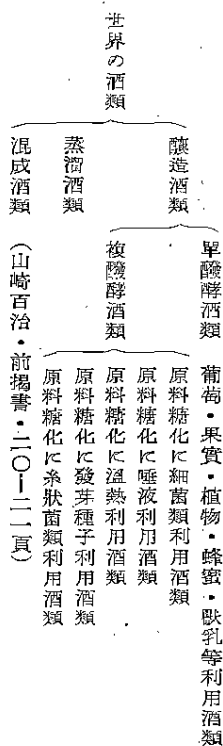 世界の酒類
釀造酒類
單醱酵酒類
葡萄・果實・植物・蜂蜜・獸乳等利用酒類
複醱酵酒類
原料糖化に細菌類利用酒類
原料糖化に唾液利用酒類
原料糖化に溫熱利用酒類
原料糖化に發芽種子利用酒類
原料糖化に糸狀菌類利用酒類
蒸溜酒類
混成酒類
(山崎百治・前揭書・二〇—二一頁)